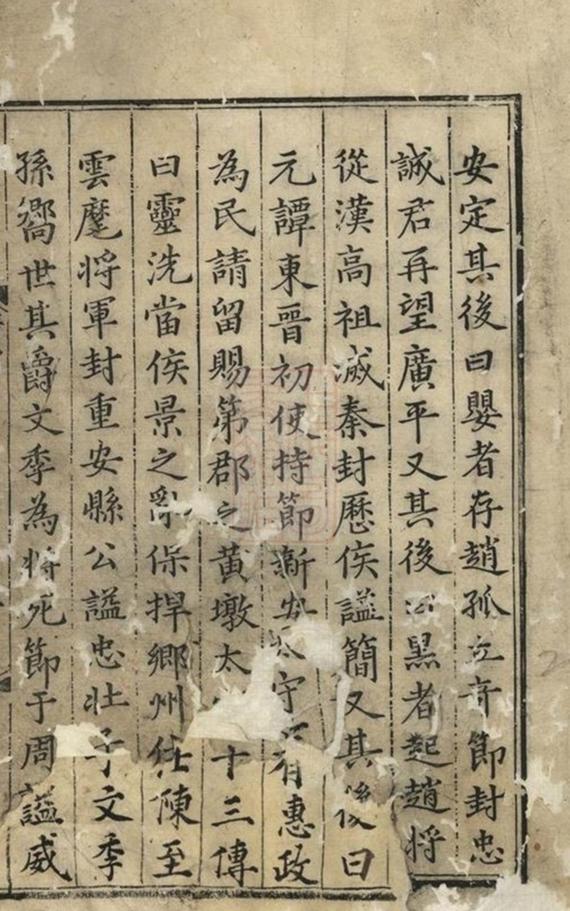 安定其後曰嬰者存趙孤立奇節封忠
誠君再望廣平又其後曰黑者起趙將
從漢高祖滅秦封歷侯謚簡又其後曰
元譚東晉初使持節新安太守有惠政
為民請留賜第郡之黃墩太十三傳
曰靈洗當侯景之亂保捍鄉州任陳至
雲麾將軍封重安縣公謚忠壯子文季
孫嚮世其爵文季為將死節于周謚威